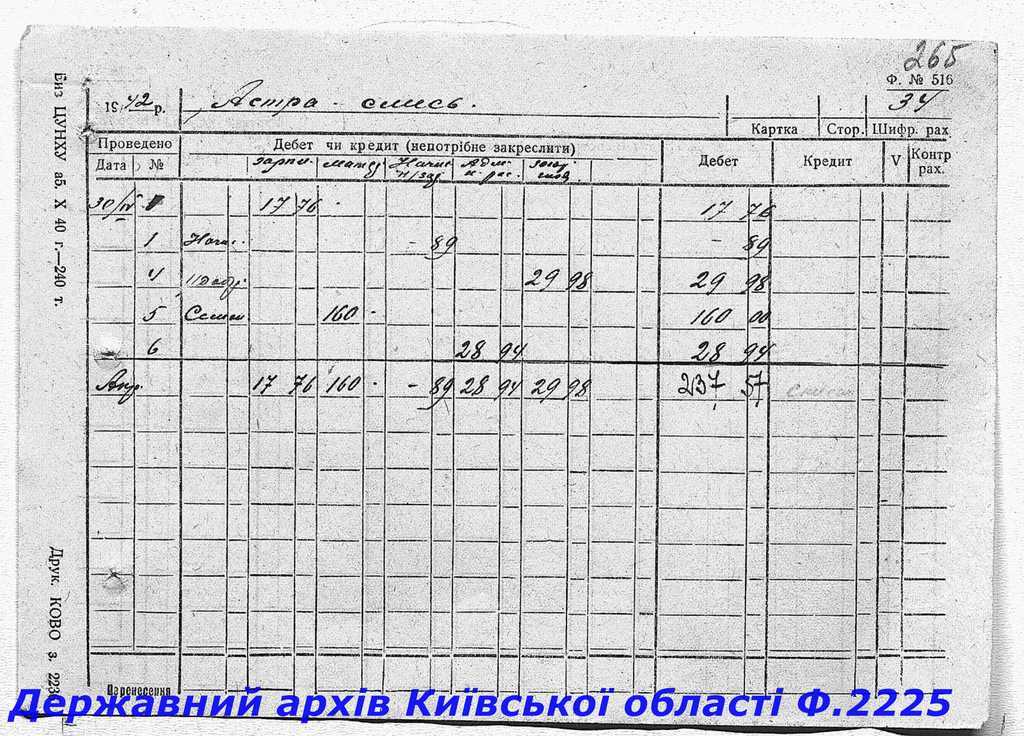 265
Ф. № 516
34
1942 р. Астра - смесь.
Картка Стор. Шифр. рах.
Проведено Дебет чи кредит (непотрібне закреслити) Дебет Кредит V Контр рах.
Дата № зарпл. матер Начис н/зар Адм. х. рас.
30/IV 1 17 76 - 17 76
1 Начис. - 89 - 89
4 29 98 29 98
5 Семен 160 - 160 00
6 28 94 28 94
Апр. 17 76 160 - - 89 28 94 29 98 237 57
Перенесення
Биз ЦУНХУ аб. X 40 г.—240 т.
Друк. КОВО з. 223
Державний архів Київської області Ф.2225